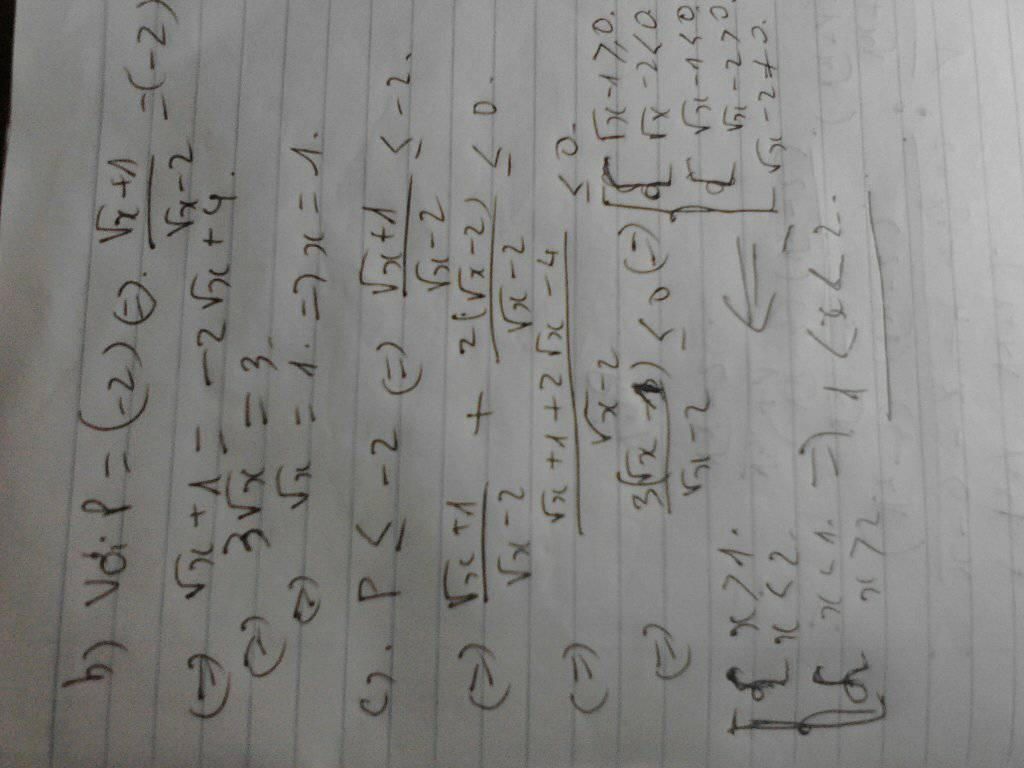 b) Với P = (-2) (=) √x+1 / √x-2 = (-2)
(=) √x + 1 = -2√x + 4.
(=) 3√x = 3
(=) √x = 1. => x = 1.
c). P ≤ -2 (=) √x+1 / √x-2 ≤ -2.
(=) √x+1 / √x-2 + 2(√x-2) / √x-2 ≤ 0.
(=) √x+1+2√x-4 / √x-2 ≤ 0.
(=) 3(√x-1) / √x-2 ≤ 0 (=) [ { √x-1≥0.
√x-2<0
{ √x-1≤0
√x-2>0.
√x-2≠0.
[ { x≥1.
x<2.
{ x≤1. => 1<x<2.
x>2